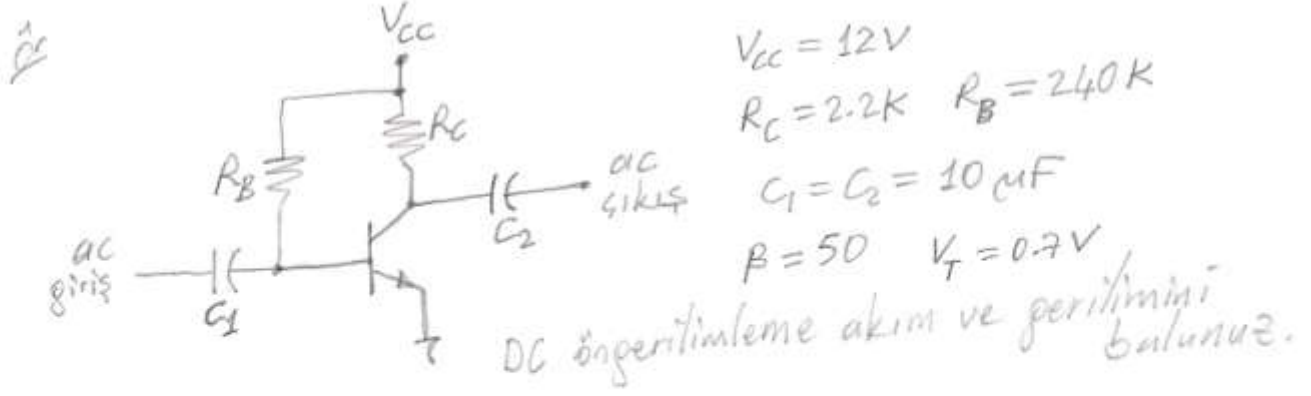 Ör
V_CC
R_C
R_B
C_2
ac
çıkış
ac
giriş
C_1
V_CC = 12V
R_C = 2.2K R_B = 240K
C_1 = C_2 = 10 μF
β = 50 V_T = 0.7V
DC öngerilimleme akım ve gerilimini
bulunuz.